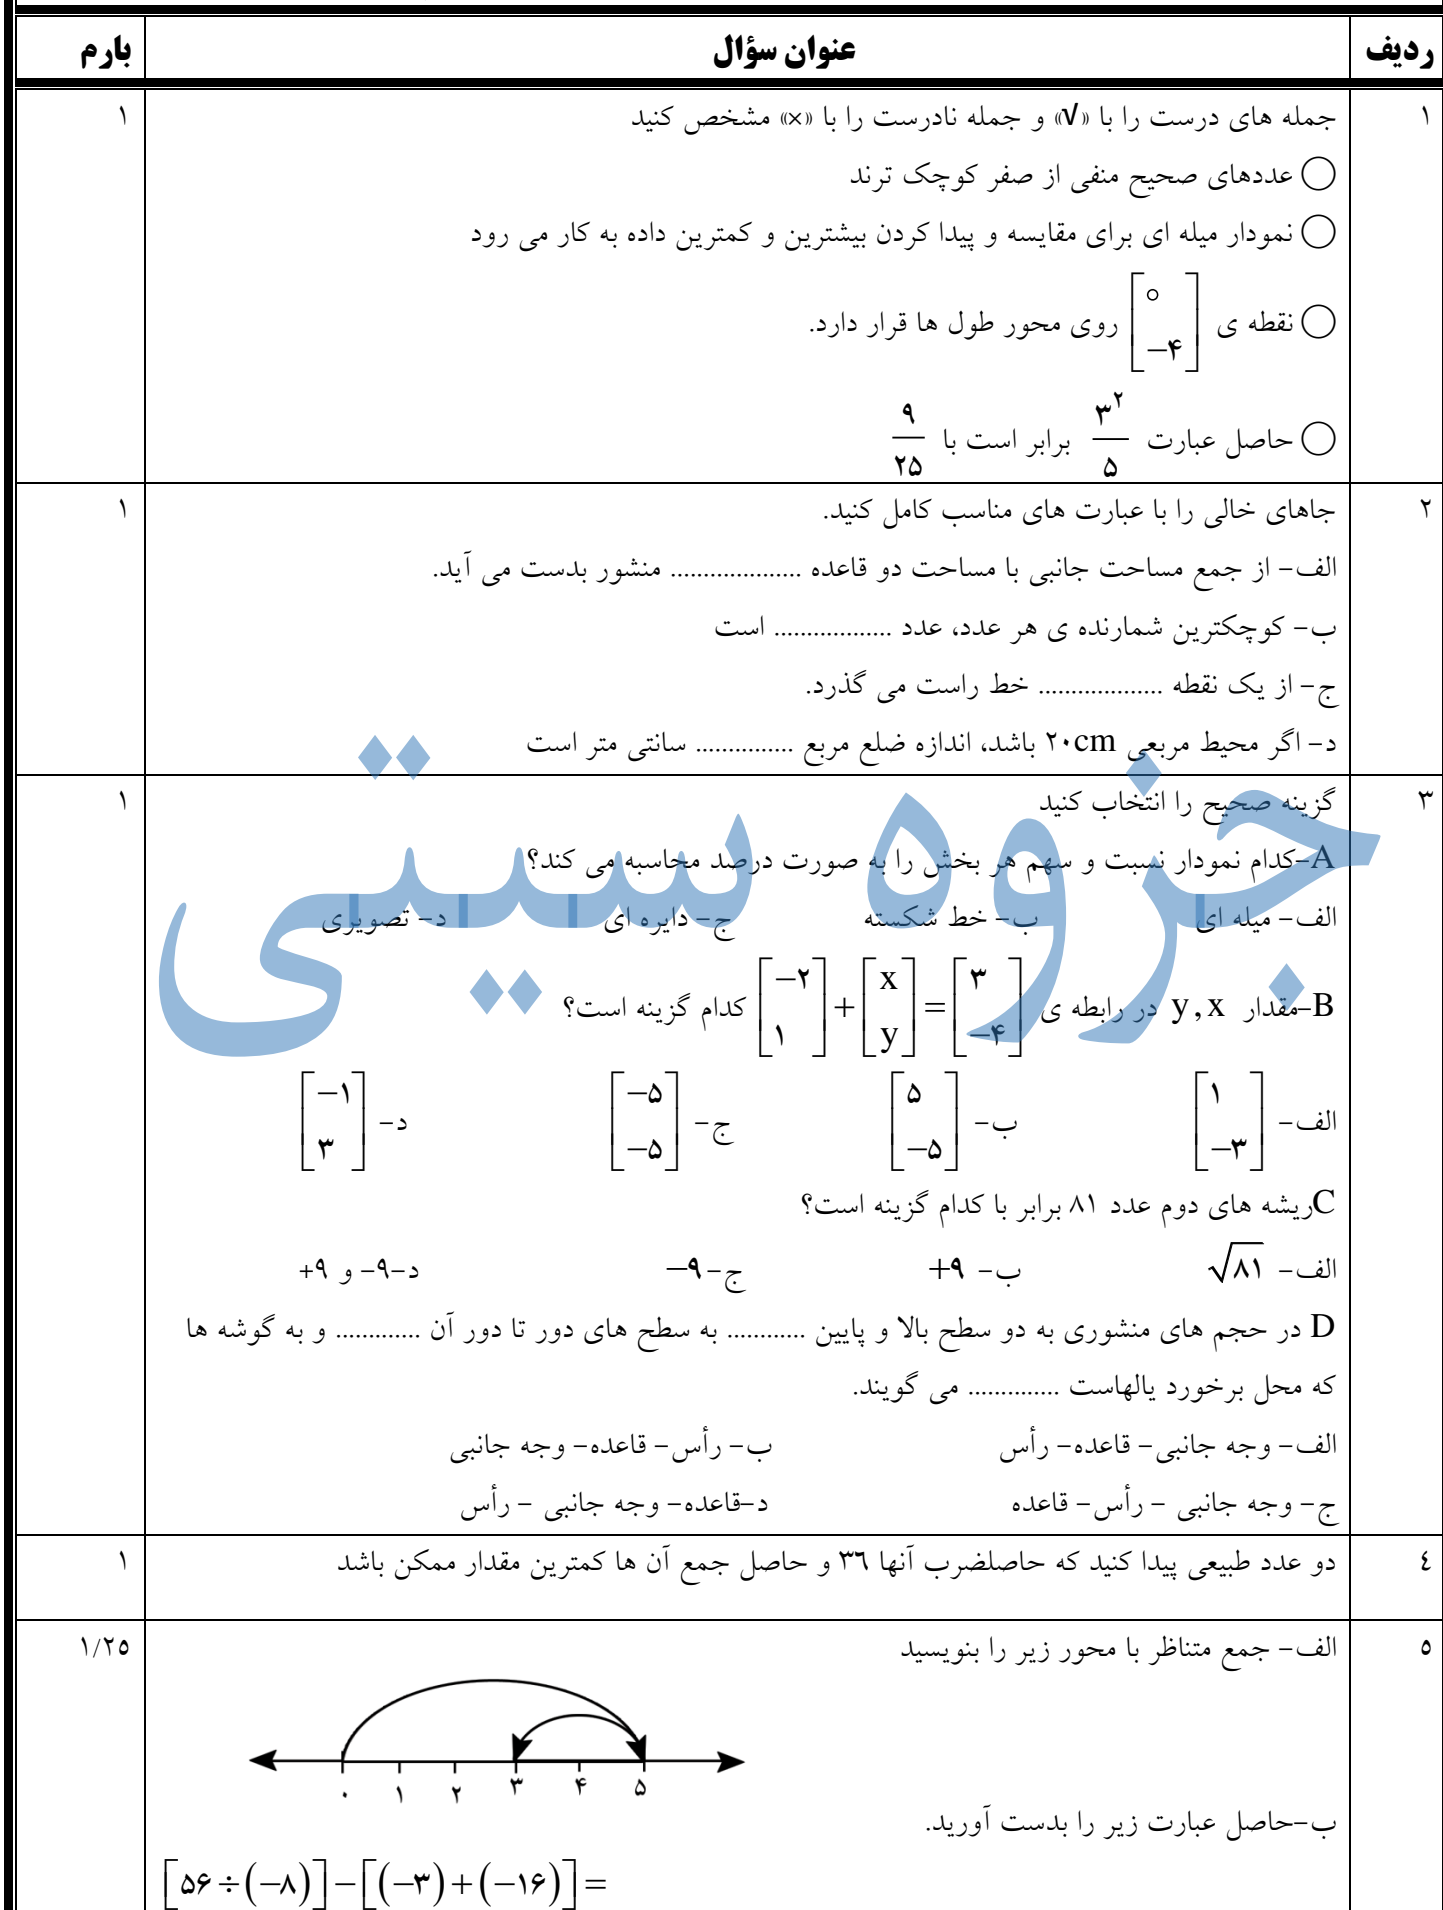 ردیف عنوان سؤال بارم
۱ جمله های درست را با «√» و جمله نادرست را با «×» مشخص کنید ۱
◯ عددهای صحیح منفی از صفر کوچک ترند
◯ نمودار میله ای برای مقایسه و پیدا کردن بیشترین و کمترین داده به کار می رود
◯ نقطه ی [۰ −۴] روی محور طول ها قرار دارد.
◯ حاصل عبارت ۳²/۵ برابر است با ۹/۲۵
۲ جاهای خالی را با عبارت های مناسب کامل کنید. ۱
الف- از جمع مساحت جانبی با مساحت دو قاعده .................... منشور بدست می آید.
ب- کوچکترین شمارنده ی هر عدد، عدد .................. است
ج- از یک نقطه ................... خط راست می گذرد.
د- اگر محیط مربعی ۲۰cm باشد، اندازه ضلع مربع ............... سانتی متر است
۳ گزینه صحیح را انتخاب کنید ۱
A-کدام نمودار نسبت و سهم هر بخش را به صورت درصد محاسبه می کند؟
الف- میله ای ب- خط شکسته ج- دایره ای د- تصویری
جزوه سیتی
B-مقدار y,x در رابطه ی [−۲ ۱]+[x y]=[۳ −۴] کدام گزینه است؟
الف- [۱ −۳] ب- [۵ −۵] ج- [−۵ −۵] د- [−۱ ۳]
Cریشه های دوم عدد ۸۱ برابر با کدام گزینه است؟
الف- √۸۱ ب- +۹ ج- −۹ د-۹- و ۹+
D در حجم های منشوری به دو سطح بالا و پایین ............ به سطح های دور تا دور آن ............. و به گوشه ها
که محل برخورد یالهاست .............. می گویند.
الف- وجه جانبی- قاعده- رأس ب- رأس- قاعده- وجه جانبی
ج- وجه جانبی - رأس- قاعده د-قاعده- وجه جانبی - رأس
٤ دو عدد طبیعی پیدا کنید که حاصلضرب آنها ۳٦ و حاصل جمع آن ها کمترین مقدار ممکن باشد ۱
٥ الف- جمع متناظر با محور زیر را بنویسید ۱/۲٥
۰ ۱ ۲ ۳ ۴ ۵
ب-حاصل عبارت زیر را بدست آورید.
[۵۶÷(−۸)]−[(−۳)+(−۱۶)]=